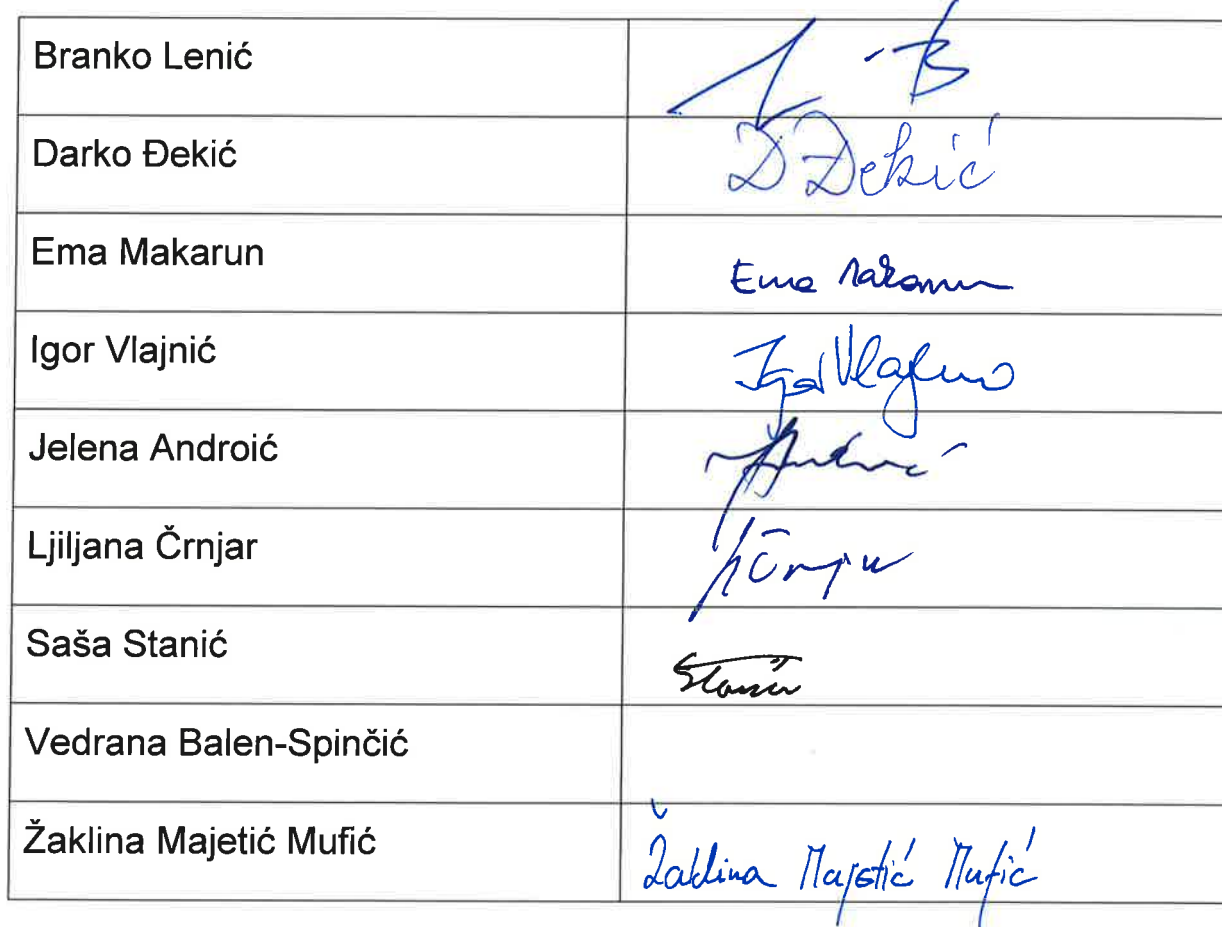 Branko Lenić
Darko Đekić D Đekić
Ema Makarun Ema Makarun
Igor Vlajnić Igor Vlajnić
Jelena Androić
Ljiljana Črnjar
Saša Stanić Stanić
Vedrana Balen-Spinčić
Žaklina Majetić Mufić Žaklina Majetić Mufić